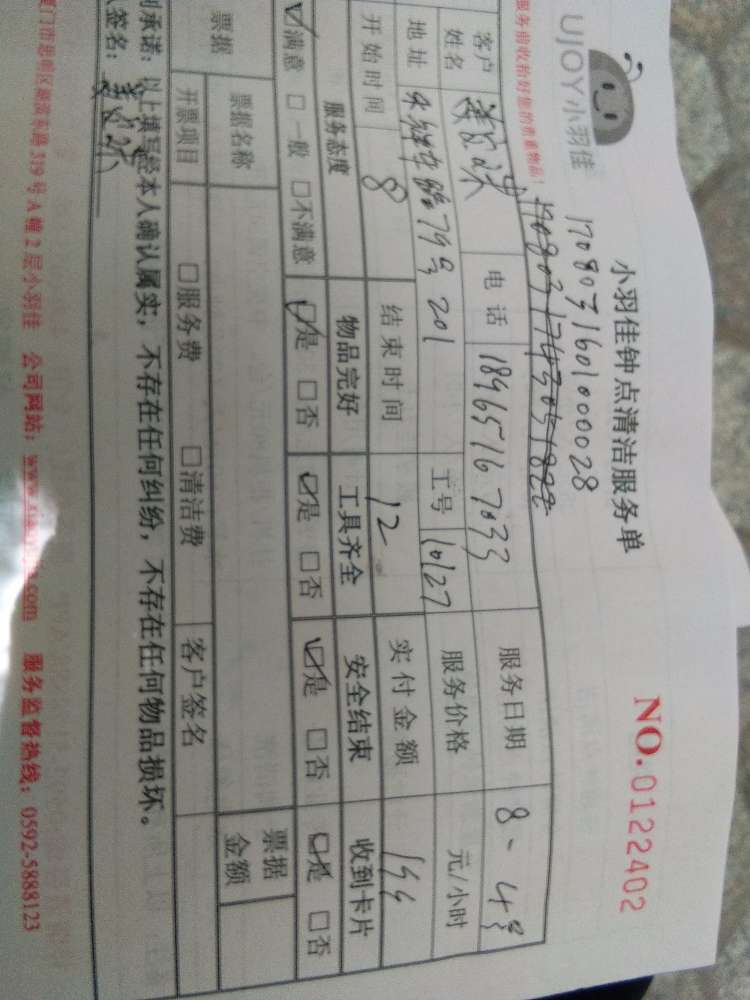 UJOY小羽佳
小羽佳钟点清洁服务单
NO.0122402
170803160100028
服务前收拾好您的贵重物品!
客户姓名 电话 18965167033 服务日期 8、4号
地址 79号201 工号 10127 服务价格 元/小时
开始时间 8 结束时间 12 实付金额
服务态度 物品完好 工具齐全 安全结束 收到卡片
☑满意 □一般 □不满意 ☑是 □否 ☑是 □否 ☑是 □否 ☑是 □否
票据 票据名称 票据金额
开票项目 □服务费 □清洁费 客户签名
承诺:以上填写经本人确认属实,不存在任何纠纷,不存在任何物品损坏。
签名:
厦门市思明区 东路319号A幢2层小羽佳 公司网站: 服务监督热线:0592-5888123